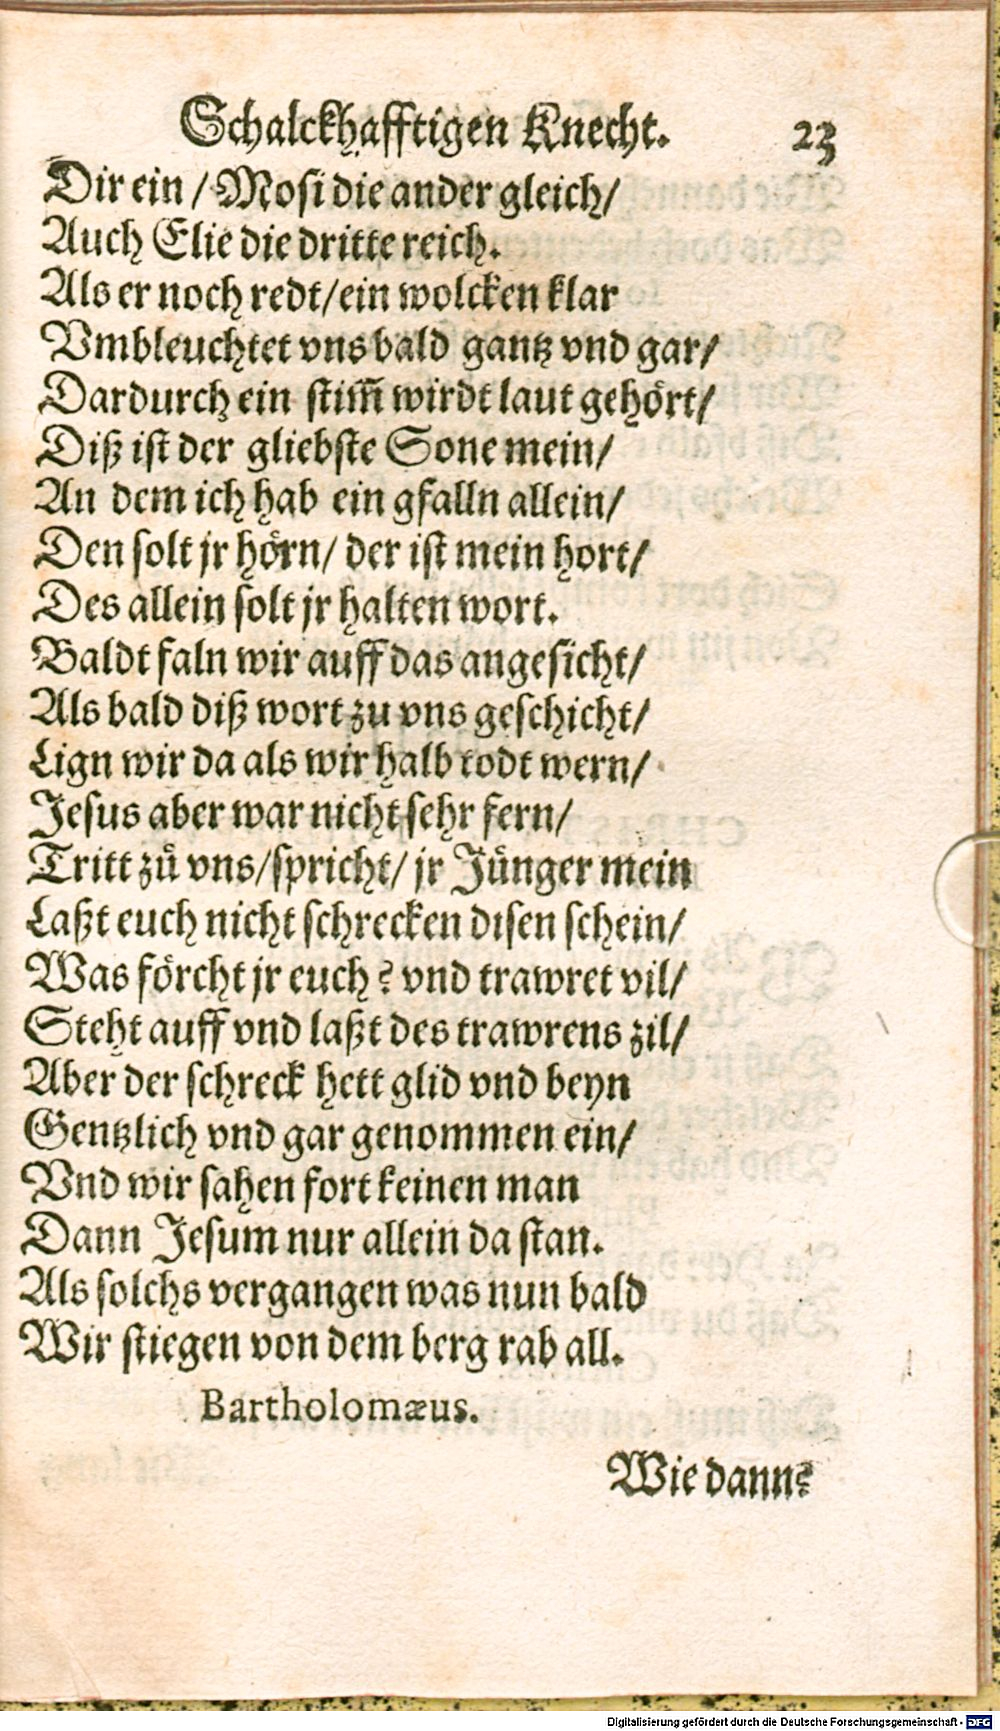 Schalckhafftigen Knecht. 23
Dir ein / Mosi die ander gleich /
Auch Elie die dritte reich.
Als er noch redt / ein wolcken klar
Vmbleuchtet vns bald gantz vnd gar /
Dardurch ein stim̅ wirdt laut gehört /
Diß ist der gliebste Sone mein /
An dem ich hab ein gfalln allein /
Den solt jr hörn / der ist mein hort /
Des allein solt jr halten wort.
Baldt faln wir auff das angesicht /
Als bald diß wort zu vns geschicht /
Lign wir da als wir halb todt wern /
Jesus aber war nicht sehr fern /
Tritt zů vns / spricht / jr Jünger mein
Laßt euch nicht schrecken disen schein /
Was förcht jr euch? vnd trawret vil /
Steht auff vnd laßt des trawrens zil /
Aber der schreck hett glid vnd beyn
Gentzlich vnd gar genommen ein /
Vnd wir sahen fort keinen man
Dann Jesum nur allein da stan.
Als solchs vergangen was nun bald
Wir stiegen von dem berg rab all.
Bartholomæus.
Wie dann?
Digitalisierung gefördert durch die Deutsche Forschungsgemeinschaft - DFG